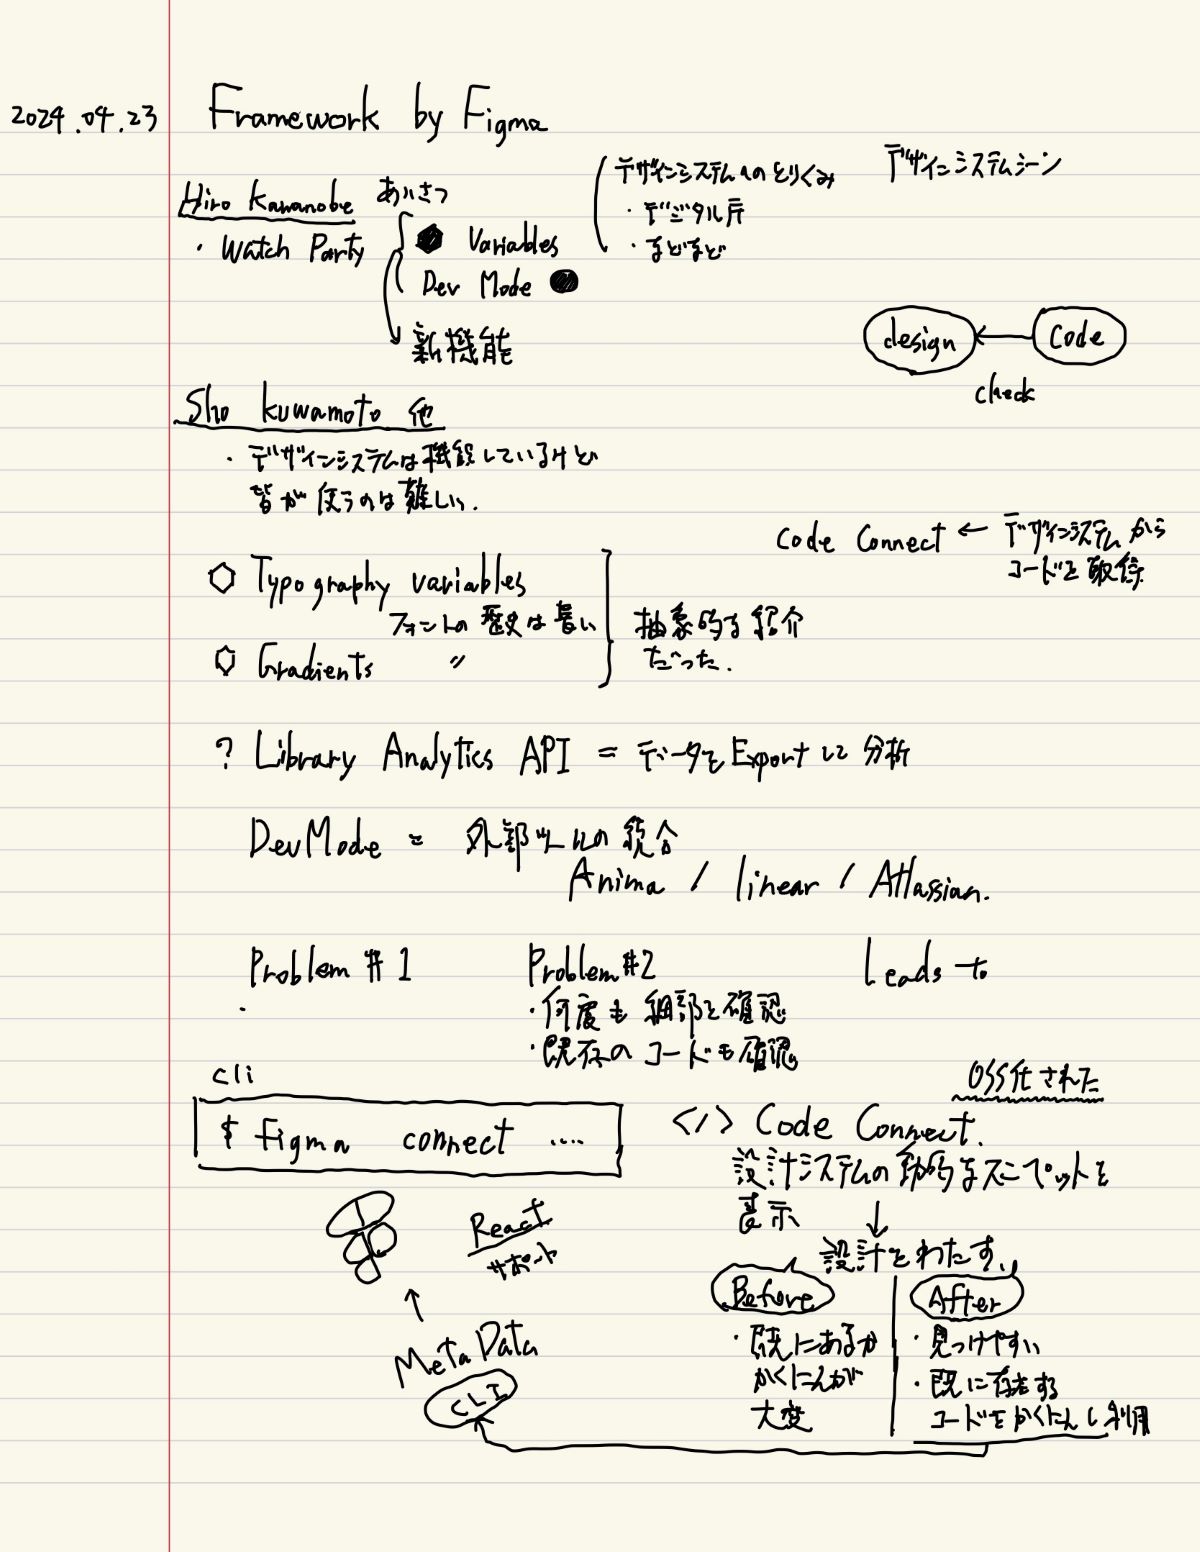 2024.04.23
Framework by Figma
Hiro Kawanobe あいさつ
・Watch Party
Variables
Dev Mode
新機能
デザインシステムへのとりくみ
・デジタル庁
・まどまど
デザインシステムシーン
design
Code
check
Sho kuwamoto 他
・デザインシステムは機能しているけど
皆が使うのは難しい.
Code Connect ← デザインシステムから
コードを取得
Typography variables
フォントの歴史は長い
Gradients 〃
抽象的な紹介
だった.
? Library Analytics API = データをExportして分析
DevMode = 外部ツールの統合
Anima / linear / Atlassian.
Problem #1
・
Problem #2
・何度も細部を確認
・既存のコードも確認
Leads to
cli
$ figma connect ....
OSS化された
</> Code Connect.
設計システムの動的なスニペットを
表示
↓
設計をわたす.
React
サポート
Meta Data
CLI
Before
・既にあるか
かくにんが
大変
After
・見つけやすい
・既に存在する
コードをかくにんし利用